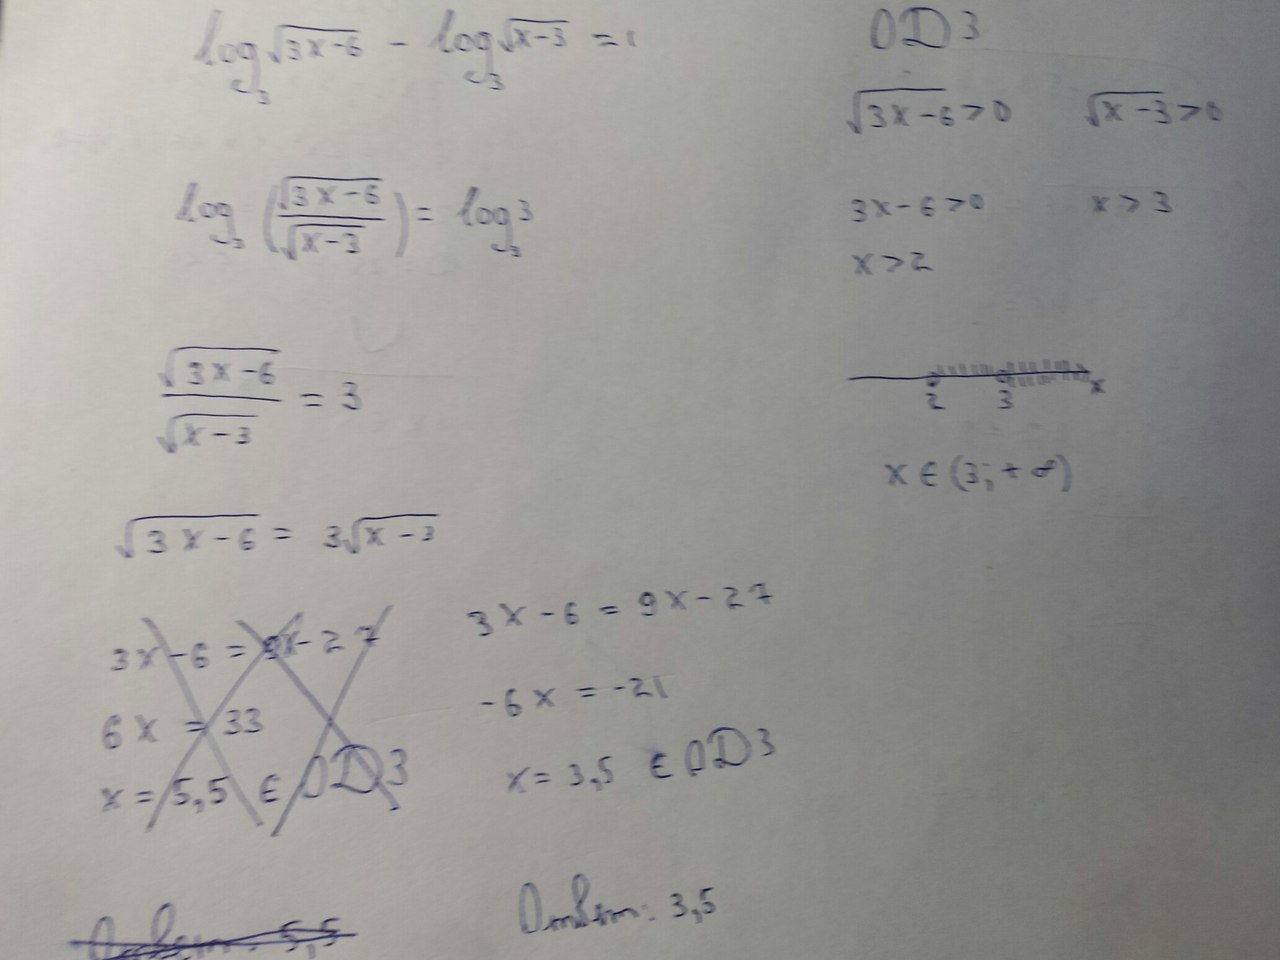 log₃√(3x-6) - log₃√(x-3) = 1
log₃(√(3x-6)/√(x-3)) = log₃3
√(3x-6)/√(x-3) = 3
√(3x-6) = 3√(x-3)
3x-6 = 9x-27
6x = 33
x = 5,5 ∈ ОДЗ
Ответ: 5,5
3x-6 = 9x-27
-6x = -21
x = 3,5 ∈ ОДЗ
Ответ: 3,5
ОДЗ
√(3x-6)>0 √(x-3)>0
3x-6>0 x>3
x>2
2 3 x
x ∈ (3; +∞)